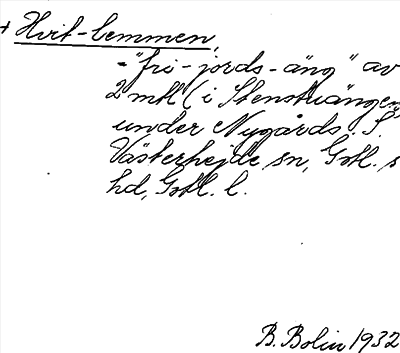 + Hvit-lemmen,
- "fri-jords-äng" av
2 mtl (i Stenstuängen)
under Nygårds. S.
Västerhejde sn, Gotl. s
hd, Gotl. l.
B. Bolin 1932